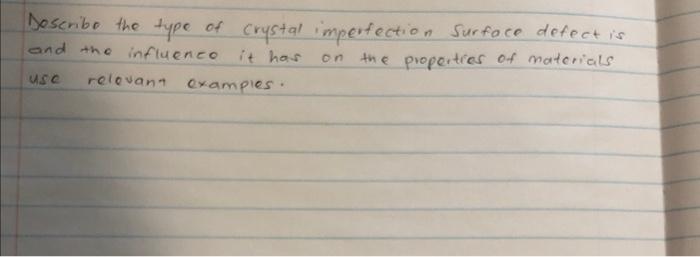 Describe the type of crystal imperfection Surface defect is
and the influence it has on the properties of materials
use relevant examples.